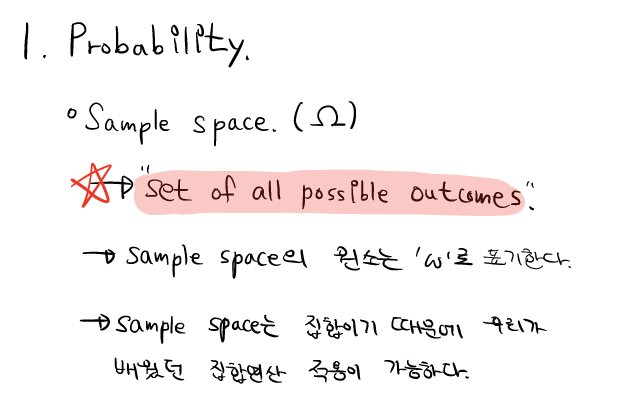 1. Probability.
° Sample space. (Ω)
☆→ "set of all possible outcomes".
→ Sample space의 원소는 'ω'로 표기한다.
→ Sample space는 집합이기 때문에 우리가
배웠던 집합연산 적용이 가능하다.